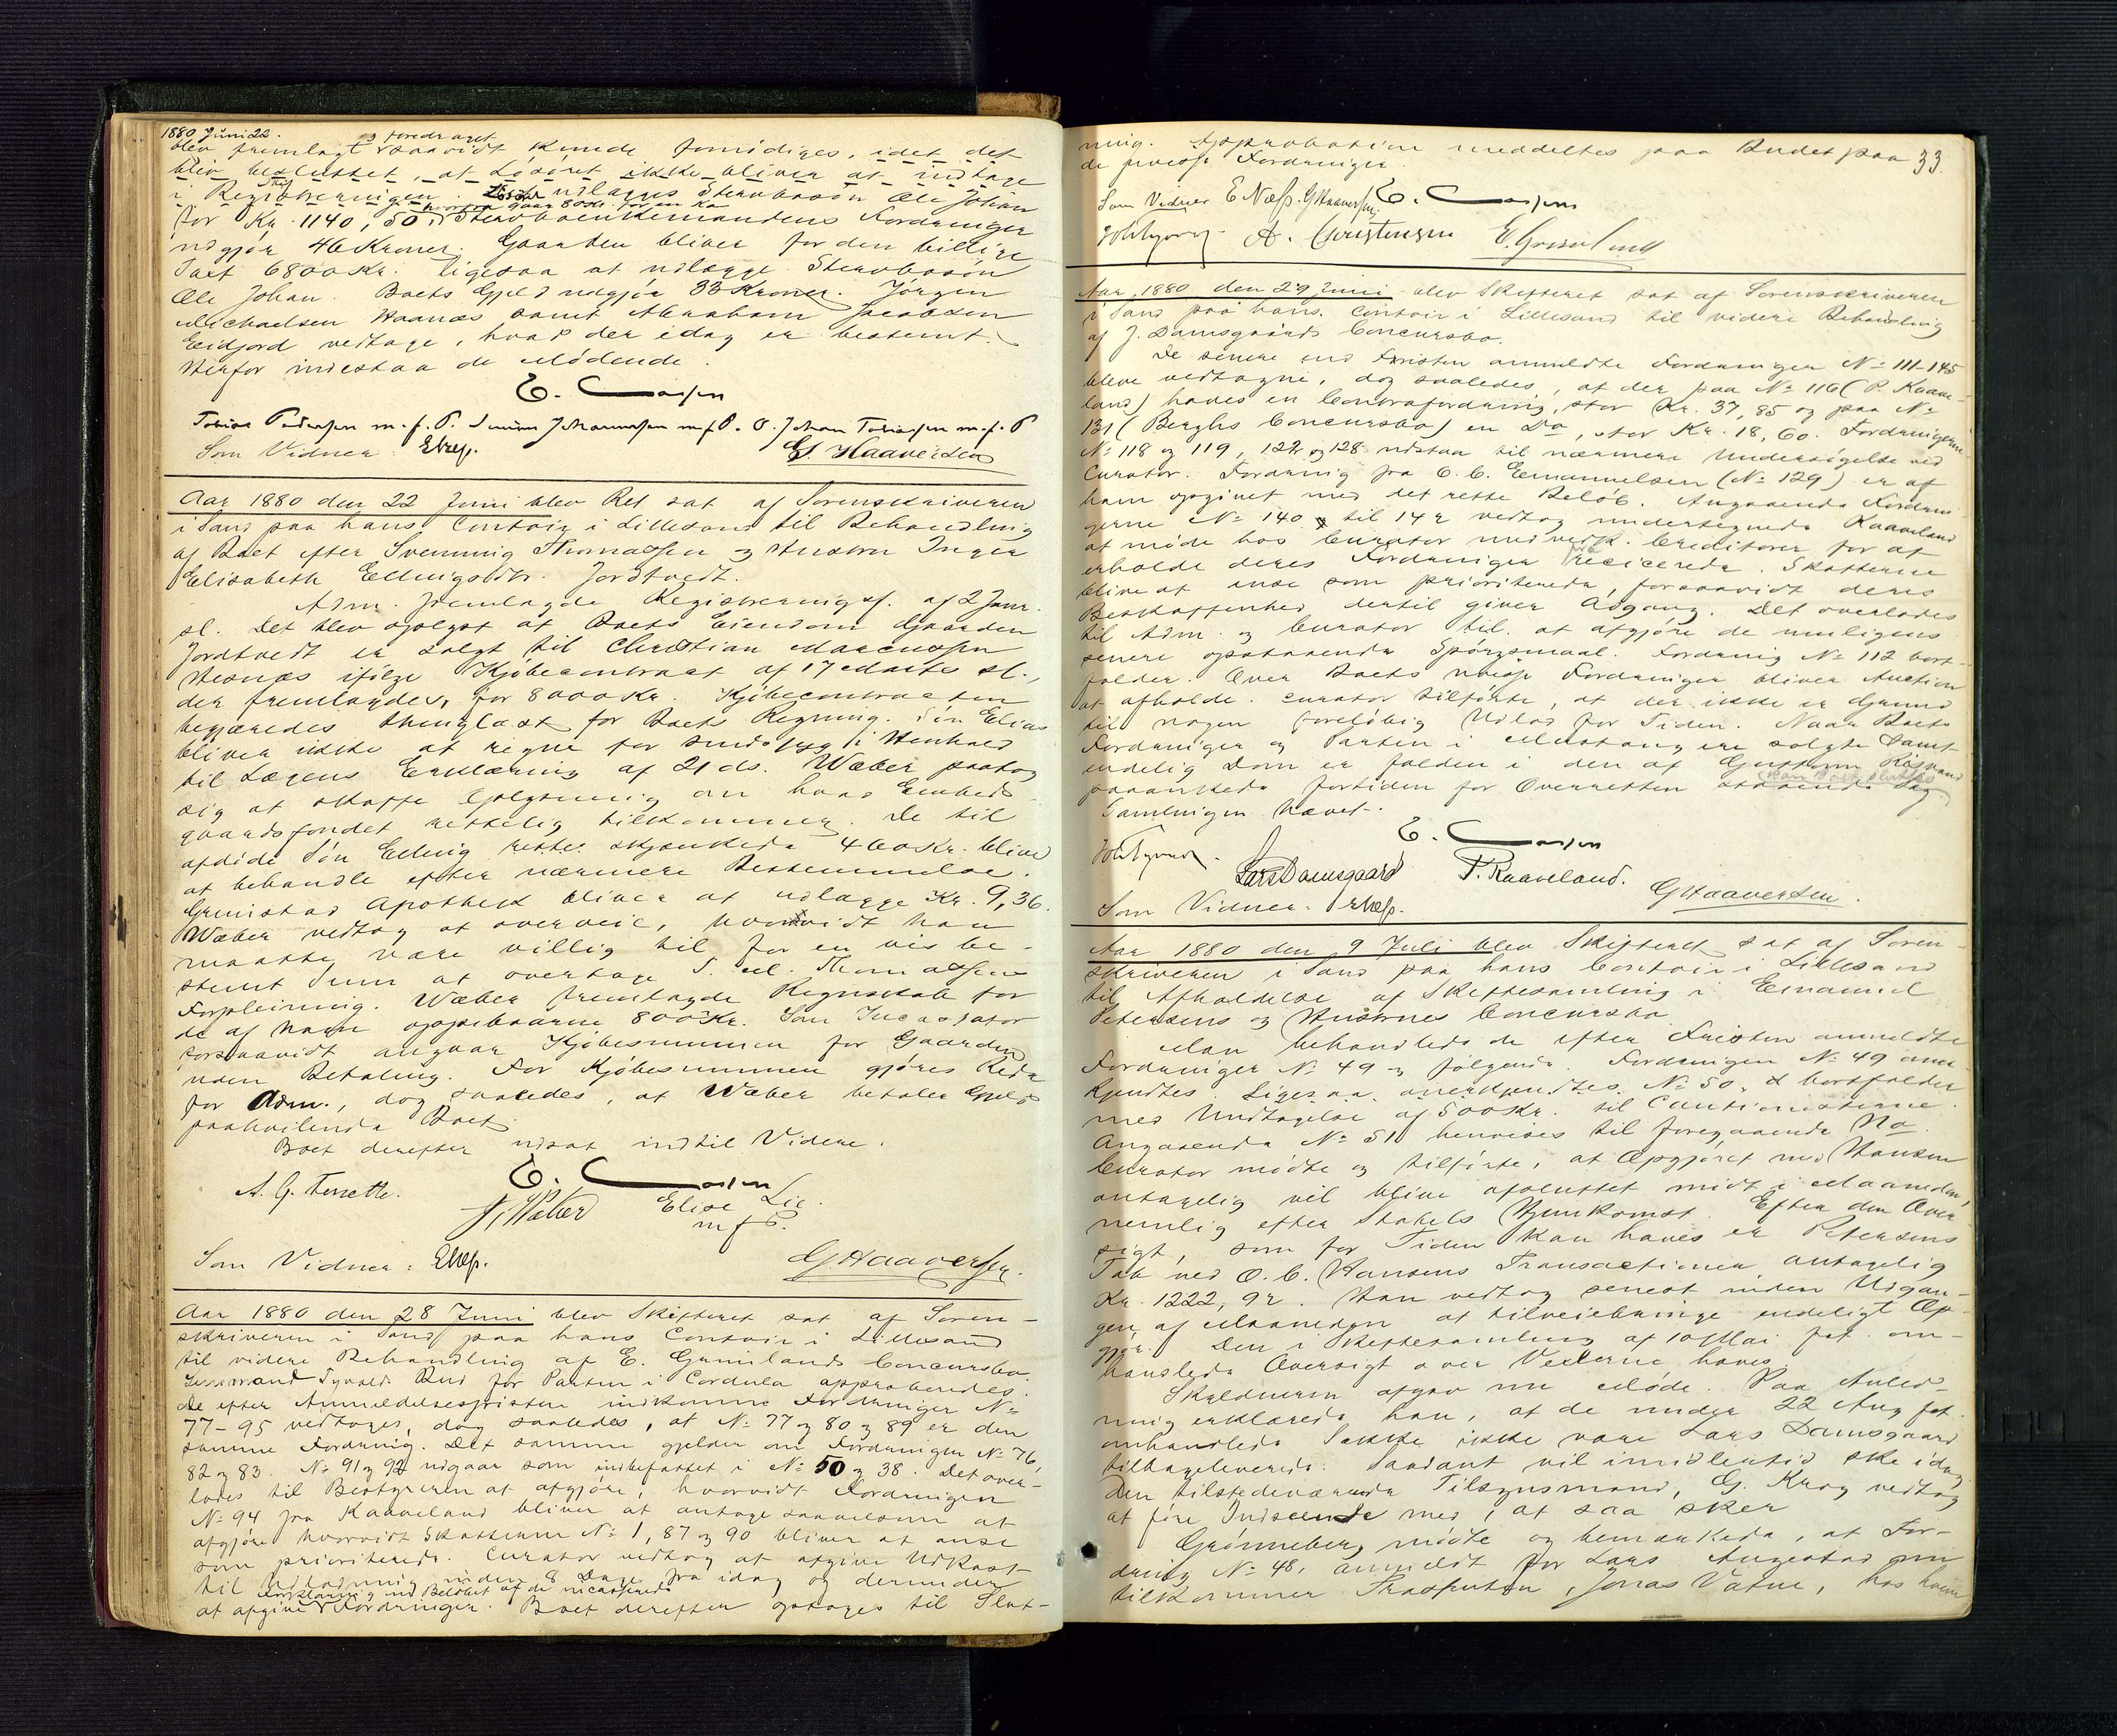 1880 Juni 22.
og foredraget
blev fremlagt saavidt kunde fornödiges, idet det
blev besluttet, at Lösöret ikke bliver at indtage
i Registreringen. udlægges Stervbosön Ole Johan
hvorfra gaar 800 Kr. for en Ko
for Kr. 1140,50. Stervboenkemandens Fordringer
udgjör 46 Kroner. Gaarden bliver for den billige
Taxt 6800 Kr. ligesaa at udlægge Stervbosön
Ole Johan. Boets Gjeld udgjör 33 Kroner. Jörgen
Michaelsen Haanæs samt Abraham Jacobsen
Eidjord vedtage, hvad der idag er bestemt.
Herfor indestaa de Mödende.
Tobias Pedersen m.f.P. Johannesen m.f.P. O. Johan Tobiassen m.f.P
Som Vidner: ENæss. G. Haaversen
Aar 1880 den 22 Juni blev Ret sat af Sorenskriveren
i Sand paa hans Contoir i Lillesand til Behandling
af Boet efter Svenning Thomassen og Hustru Inger
Elisabeth Ellingsdtr. Jordtvedt.
Adm. fremlagde Registreringsf. af 2 Janr.
sl. Det blev oplyst at Boets Eiendom Gaarden
Jordtvedt er solgt til Christian Marcussen
Hesnæs ifölge Kjöbecontract af 17 Marts sl.,
der fremlagdes, for 8000 Kr. Kjöbecontracten
begjæredes thinglæst for Boets Regning. Sön Elias
bliver ikke at regne for sindssyg i Henhold
til Lægens Erklæring af 21 ds. Wæber paatog
sig at skaffe Oplysning om hvad Embeds-
gaardsfondet rettelig tilkommer. De til
afdöde Sön Elling skjænkede 460 Kr. blive
at behandle efter nærmere Bestemmelse.
Grimstad Apothek bliver at udlægge Kr. 9,36.
Wæber vedtog at overveie, hvorvidt han
maatte være villig til for en vis be-
stemt Sum at overtage S. M. Thomassens
Forpleining. Wæber fremlagde Regnskab for
de af ham oppebaarne 800 Kr. Som Incassator
forsaavidt angaar Kjöbesummen for Gaarden
uden Betaling. For Kjöbesummen gjöres Rede
for Adm., dog saaledes, at Wæber betaler Gjeld
paahvilende Boet.
Boet derefter udsat indtil Videre.
A. G. Terrette. Wæber Elise Lie
m f P.
Som Vidner: ENæss. GHaaversen.
Aar 1880 den 28 Juni blev Skifteret sat af Soren-
skriveren i Sand paa hans Contoir i Lillesand
til videre Behandling af E. Grunilands Concursbo.
Lensmand Syvalds Bud for Parten i Cordula approberedes.
De efter Anmeldelsesfristen indkomne Fordringer No
77-95 vedtoges, dog saaledes, at No 77 og 80 og 89 er den
samme Fordring. Det samme gjelder om Fordringen No 76,
82 og 83. No 91 og 92 udgaar som indbefattet i No 50 og 38. Det over-
lodes til Bestyreren at afgjöre, hvorvidt Fordringen
No 94 fra Kaaveland bliver at antage saavelsom at
afgjöre hvorvidt Skatterne No 1, 87 og 90 bliver at anse
som prioriterede. Curator vedtog at afgive Udkast
til Udlodning inden 8 Dage fra idag og derunder
Forklaring ved Belöbet af de incasserede
at afgive Fordringer. Boet derefter optoges til Slut-
33.
ning. Approbation meddeltes paa Budet paa
de uvisse Fordringer.
Som Vidner E Næss. GHaaversen.
A. Christensen
Aar 1880 den 29 Juni blev Skifteret sat af Sorenskriveren
i Sand paa hans Contoir i Lillesand til videre Behandling
af J. Damsgaards Concursbo.
De senere end Fristen anmeldte Fordringer No 111-145
bleve vedtagne, dog saaledes, at der paa No 116 (P. Kaave-
land) haves en Contrafordring, stor Kr. 37,85 og paa No
131 (Berghs Concursbo) en Do, stor Kr. 18,60. Fordringerne
No 118 og 119, 122 og 128 udstaa til nærmere Undersögelse ved
Curator. Fordring fra C. C. Emanuelsen (No 129) er af
ham opgivet med det rette Belöb. Angaaende Fordrin-
gerne No 140 til 142 vedtog undertegnede Kaaveland
at möde hos Curator med vedk. Creditorer for at
erholde deres Fordringer precicerede. Skatterne
blive at anse som prioriterede, forsaavidt deres
Beskaffenhed dertil giver Adgang. Det overlodes
til Adm. og Curator til at afgjöre de muligens
senere opstaaende Spörgsmaal. Fordring No 112 bort-
falder. Over Boets uvisse Fordringer bliver Auction
at afholde. Curator tilförte, at der ikke er Grund
til nogen forelöbig Udlod for Tiden. Naar Boets
Fordringer og Parten i Mustang ere solgte samt
endelig Dom er falden i den af Guttorm
kan Boet sluttes
paaankede fortiden for Overretten staaende Sag
Samlingen hævet.
Lars Damsgaard P. Kaaveland.
Som Vidner: ENæss. GHaaversen.
Aar 1880 den 9 Juli blev Skifteret sat af Soren-
skriveren i Sand paa hans Contoir i Lillesand
til Afholdelse af Skiftesamling i Emanuel
Petersens og Hustrues Concursbo
Man behandlede de efter Fristen anmeldte
Fordringer No 49 og fölgende. Fordringen No 49 aner-
kjendtes. Ligesaa anerkjendtes No 50, & bortfalder
med Undtagelse af 500 Kr. til Cautionisterne.
Angaaende No 51 henvises til foregaaende No.
Curator mödte og tilförte, at Opgjöret med Hansen
antagelig vil blive afsluttet midt i Maaneden,
nemlig efter Stakels Hjemkomst. Efter den Over-
sigt, som for Tiden kan haves er Petersens
Tab ved O. C. Hansens Transactioner antagelig
Kr. 1222,92. Han vedtog senest inden Udgan-
gen af Maaneden at tilveiebringe endeligt Op-
gjör. Den i Skiftesamling af 10 Mai fst. om-
handlede Oversigt over Vexlerne haves.
Skyldneren afgav nu Möde. Paa Anled-
ning erklærede han, at de under 22 Aug fst.
omhandlede Sække ikke vare Lars Damsgaard
tilbageleverede. Saadant vil imidlertid ske idag.
Den tilstedeværende Tilsynsmand, G. Krog vedtog
at före Indseende med, at saa sker
Grönneberg mödte og bemærkede, at For-
dring No 48, anmeldt for Lars Augestad nu
tilkommer Prosfuten, Jonas Vatne, hos hvem